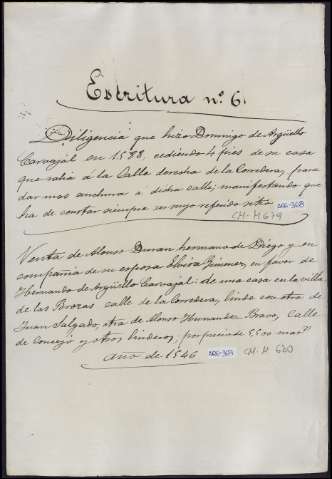 Escritura nº 6.
Diligencia que hizo Domingo de Argüello
Carvajal en 1588, cediendo 4 pies de su casa
que salia á la Calle derecha de la Corredera, para
dar mas anchura á dicha calle; manifestando que
ha de constar siempre su mejo referido
CM-M 679
Venta de Alonso Duran hermano de Diego y en
compañia de su esposa Elvira Jimenez, en favor de
Hernando de Argüello Carvajal: de una casa en la villa
de las Brozas calle de la Corredera, linda con otra de
Juan Salgado, otra de Alonso Hernandez Bravo, Calle
de Concejo y otros linderos, por precio de 5,500 mar.s
año de 1546 CM-M 680